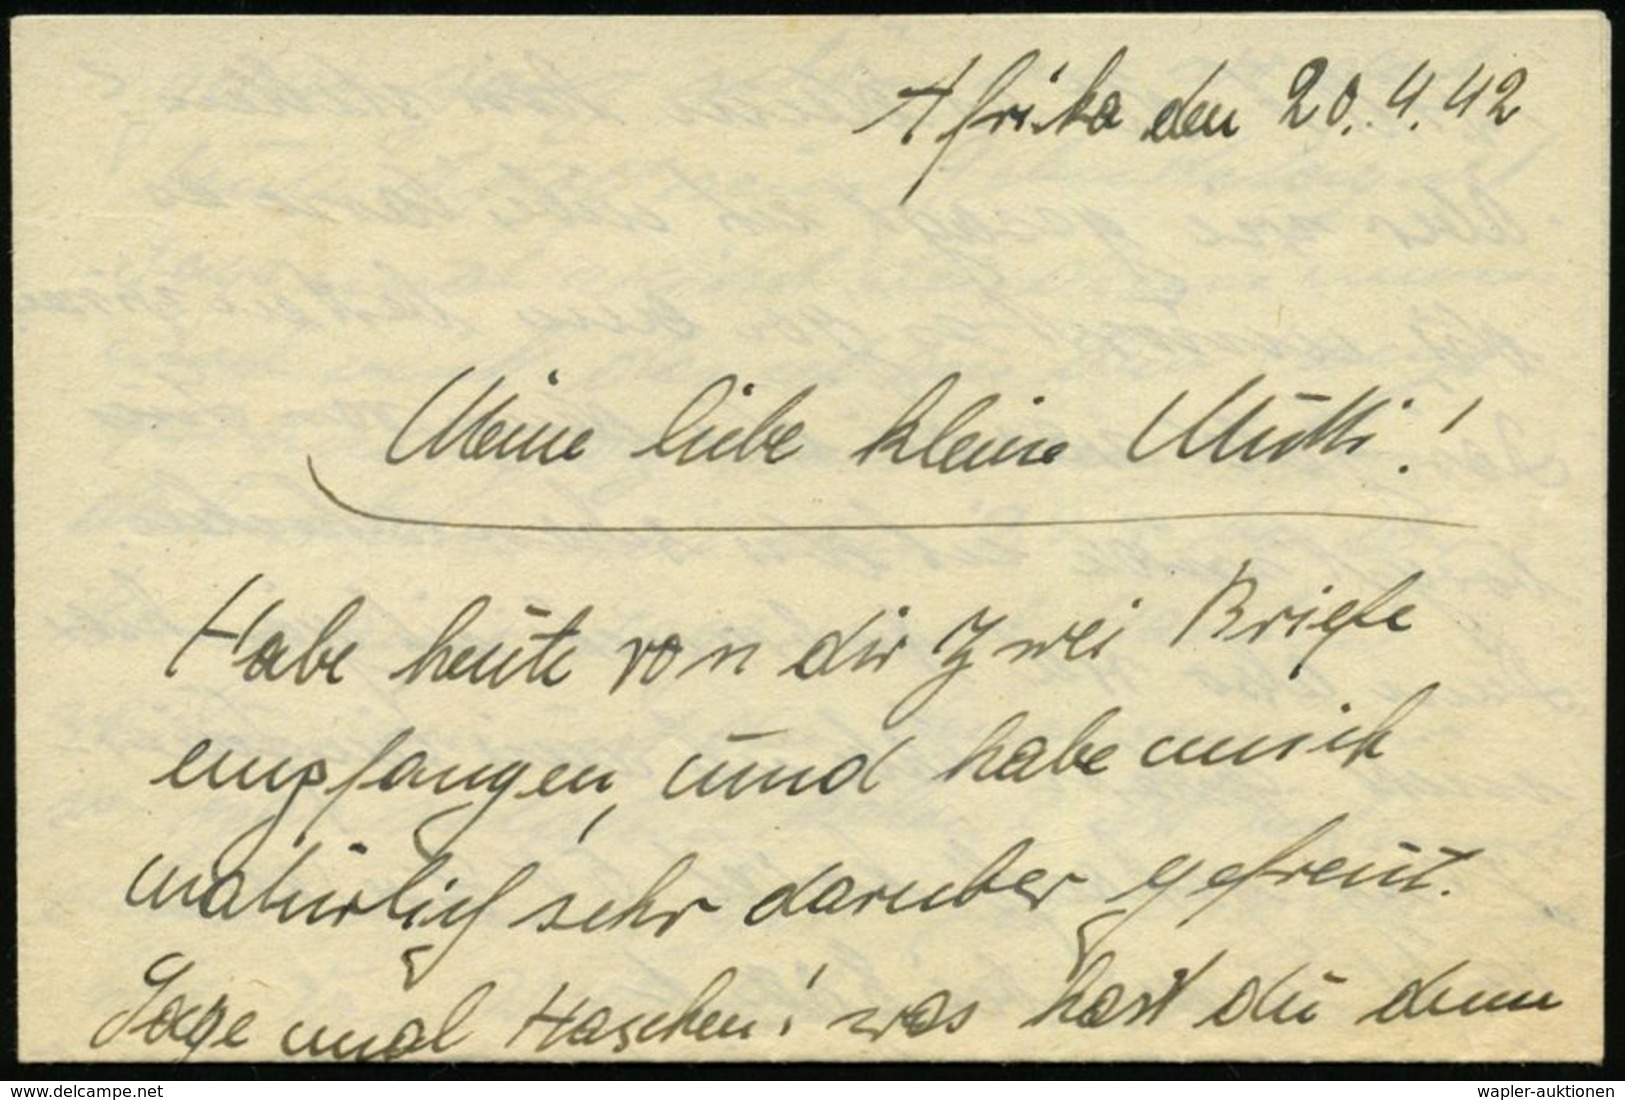 Afrika den 20.4.42
Meine liebe kleine Mutti!
Habe heute von dir zwei Briefe
empfangen, und habe mich
natürlich sehr daruber gefreut.
Sage mal Haschen! was hast du denn
delcampe.net
wapler-auktionen